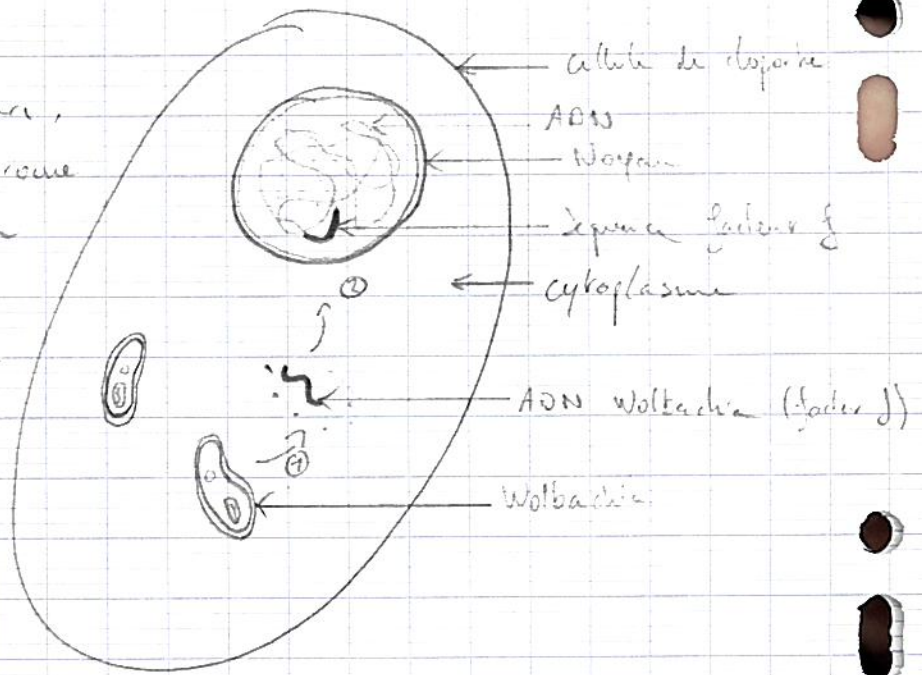 cellule de cloporte
ADN
Noyau
Séquence facteur f
cytoplasme
②
ADN Wolbachia (facteur f)
①
Wolbachia